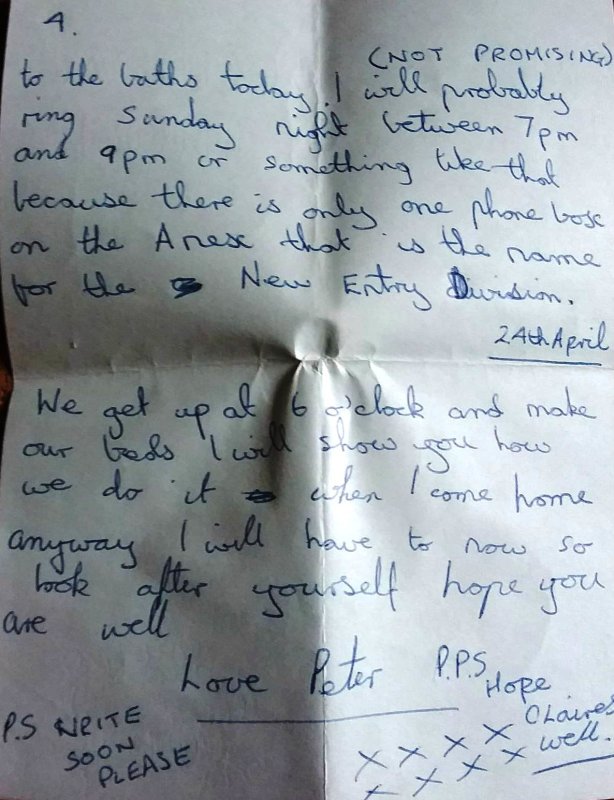 4.
(NOT PROMISING)
to the baths today. I will probably
ring Sunday night between 7pm
and 9pm or something like that
because there is only one phone box
on the Anex that is the name
for the New Entry Division.
24th April
We get up at 6 o'clock and make
our beds I will show you how
we do it when I come home
anyway I will have to now so
look after yourself hope you
are well
Love Peter
P.P.S Hope
Claires
well.
P.S WRITE
SOON
PLEASE
x x x x
x x x x